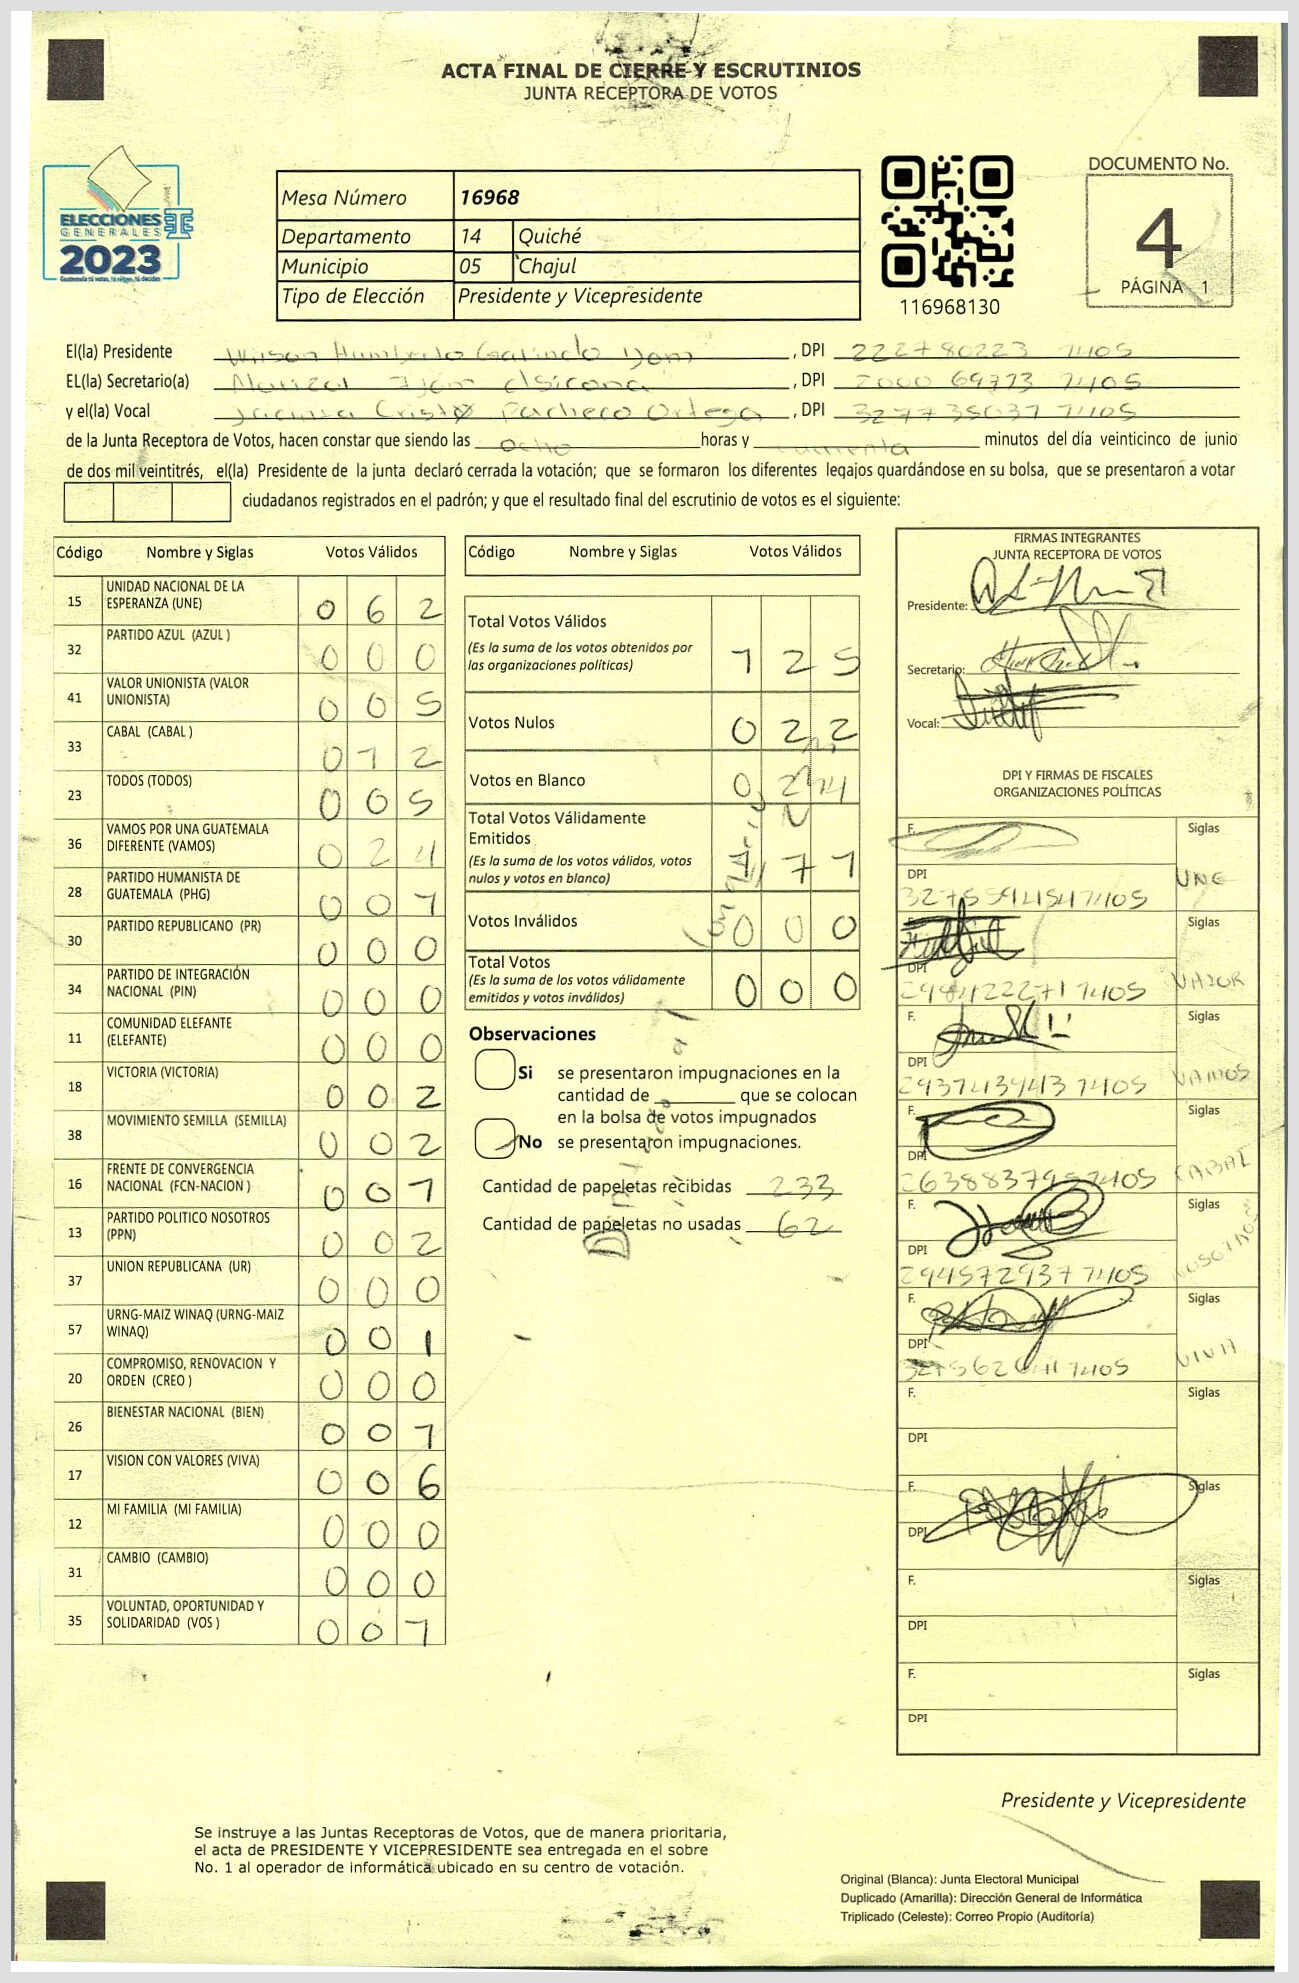 ACTA FINAL DE CIERRE Y ESCRUTINIOS
JUNTA RECEPTORA DE VOTOS
ELECCIONES
GENERALES
2023
Mesa Número 16968
Departamento 14 Quiché
Municipio 05 Chajul
Tipo de Elección Presidente y Vicepresidente
116968130
DOCUMENTO No.
4
PÁGINA 1
El(la) Presidente Wilson Humberto Galindo , DPI 222780223 1405
EL(la) Secretario(a) , DPI 2000 69773 1405
y el(la) Vocal Cristo Pacheco Ortega , DPI 327735037 1405
de la Junta Receptora de Votos, hacen constar que siendo las ocho horas y minutos del día veinticinco de junio
de dos mil veintitrés, el(la) Presidente de la junta declaró cerrada la votación; que se formaron los diferentes legajos guardándose en su bolsa, que se presentaron a votar
ciudadanos registrados en el padrón; y que el resultado final del escrutinio de votos es el siguiente:
Código Nombre y Siglas Votos Válidos
15 UNIDAD NACIONAL DE LA ESPERANZA (UNE) 0 6 2
32 PARTIDO AZUL (AZUL ) 0 0 0
41 VALOR UNIONISTA (VALOR UNIONISTA) 0 0 5
33 CABAL (CABAL ) 0 1 2
23 TODOS (TODOS) 0 0 5
36 VAMOS POR UNA GUATEMALA DIFERENTE (VAMOS) 0 2 4
28 PARTIDO HUMANISTA DE GUATEMALA (PHG) 0 0 1
30 PARTIDO REPUBLICANO (PR) 0 0 0
34 PARTIDO DE INTEGRACIÓN NACIONAL (PIN) 0 0 0
11 COMUNIDAD ELEFANTE (ELEFANTE) 0 0 0
18 VICTORIA (VICTORIA) 0 0 2
38 MOVIMIENTO SEMILLA (SEMILLA) 0 0 2
16 FRENTE DE CONVERGENCIA NACIONAL (FCN-NACION ) 0 0 1
13 PARTIDO POLITICO NOSOTROS (PPN) 0 0 2
37 UNION REPUBLICANA (UR) 0 0 0
57 URNG-MAIZ WINAQ (URNG-MAIZ WINAQ) 0 0 1
20 COMPROMISO, RENOVACION Y ORDEN (CREO ) 0 0 0
26 BIENESTAR NACIONAL (BIEN) 0 0 1
17 VISION CON VALORES (VIVA) 0 0 6
12 MI FAMILIA (MI FAMILIA) 0 0 0
31 CAMBIO (CAMBIO) 0 0 0
35 VOLUNTAD, OPORTUNIDAD Y SOLIDARIDAD (VOS ) 0 0 1
Código Nombre y Siglas Votos Válidos
Total Votos Válidos
(Es la suma de los votos obtenidos por las organizaciones políticas) 1 2 5
Votos Nulos 0 2 2
Votos en Blanco 0 2 4
Total Votos Válidamente Emitidos
(Es la suma de los votos válidos, votos nulos y votos en blanco) 1 7 1
Votos Inválidos 0 0 0
Total Votos
(Es la suma de los votos válidamente emitidos y votos inválidos) 0 0 0
Observaciones
Si se presentaron impugnaciones en la
cantidad de que se colocan
en la bolsa de votos impugnados
No se presentaron impugnaciones.
Cantidad de papeletas recibidas 233
Cantidad de papeletas no usadas 62
FIRMAS INTEGRANTES
JUNTA RECEPTORA DE VOTOS
Presidente:
Secretario:
Vocal:
DPI Y FIRMAS DE FISCALES
ORGANIZACIONES POLÍTICAS
F. Siglas
DPI UNE
F. Siglas
DPI VALOR
F. Siglas
DPI VAMOS
2937434431405
F. Siglas
DPI CABAL
F. Siglas
DPI NOSOTROS
2945729371405
F. Siglas
DPI VIVA
F. Siglas
DPI
F. Siglas
DPI
F. Siglas
DPI
F. Siglas
DPI
Presidente y Vicepresidente
Se instruye a las Juntas Receptoras de Votos, que de manera prioritaria,
el acta de PRESIDENTE Y VICEPRESIDENTE sea entregada en el sobre
No. 1 al operador de informática ubicado en su centro de votación.
Original (Blanca): Junta Electoral Municipal
Duplicado (Amarilla): Dirección General de Informática
Triplicado (Celeste): Correo Propio (Auditoría)